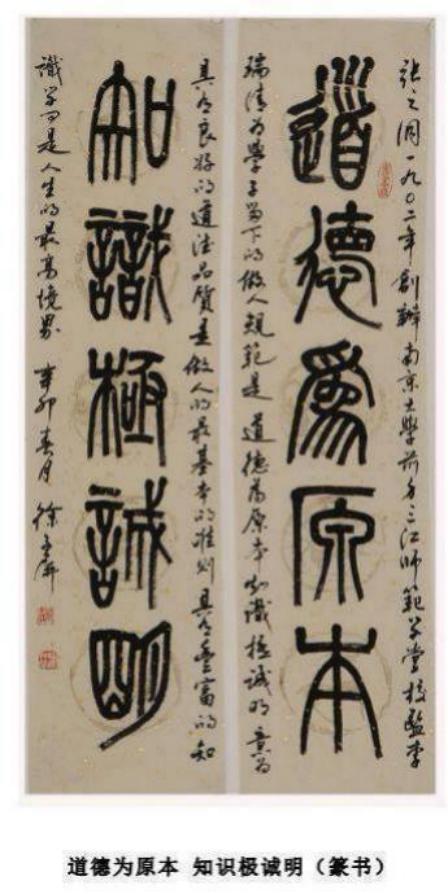 道德為原本
知識極誠明
張之洞一九〇二年創辦南京大學前身三江師範学堂校監李
瑞清為學子留下的做人規範是道德為原本知識極誠明意為
具有良好的道德品質是做人的最基本的准则具有豐富的知
識学问是人生的最高境界 辛卯春月 徐
道德为原本 知识极诚明（篆书）